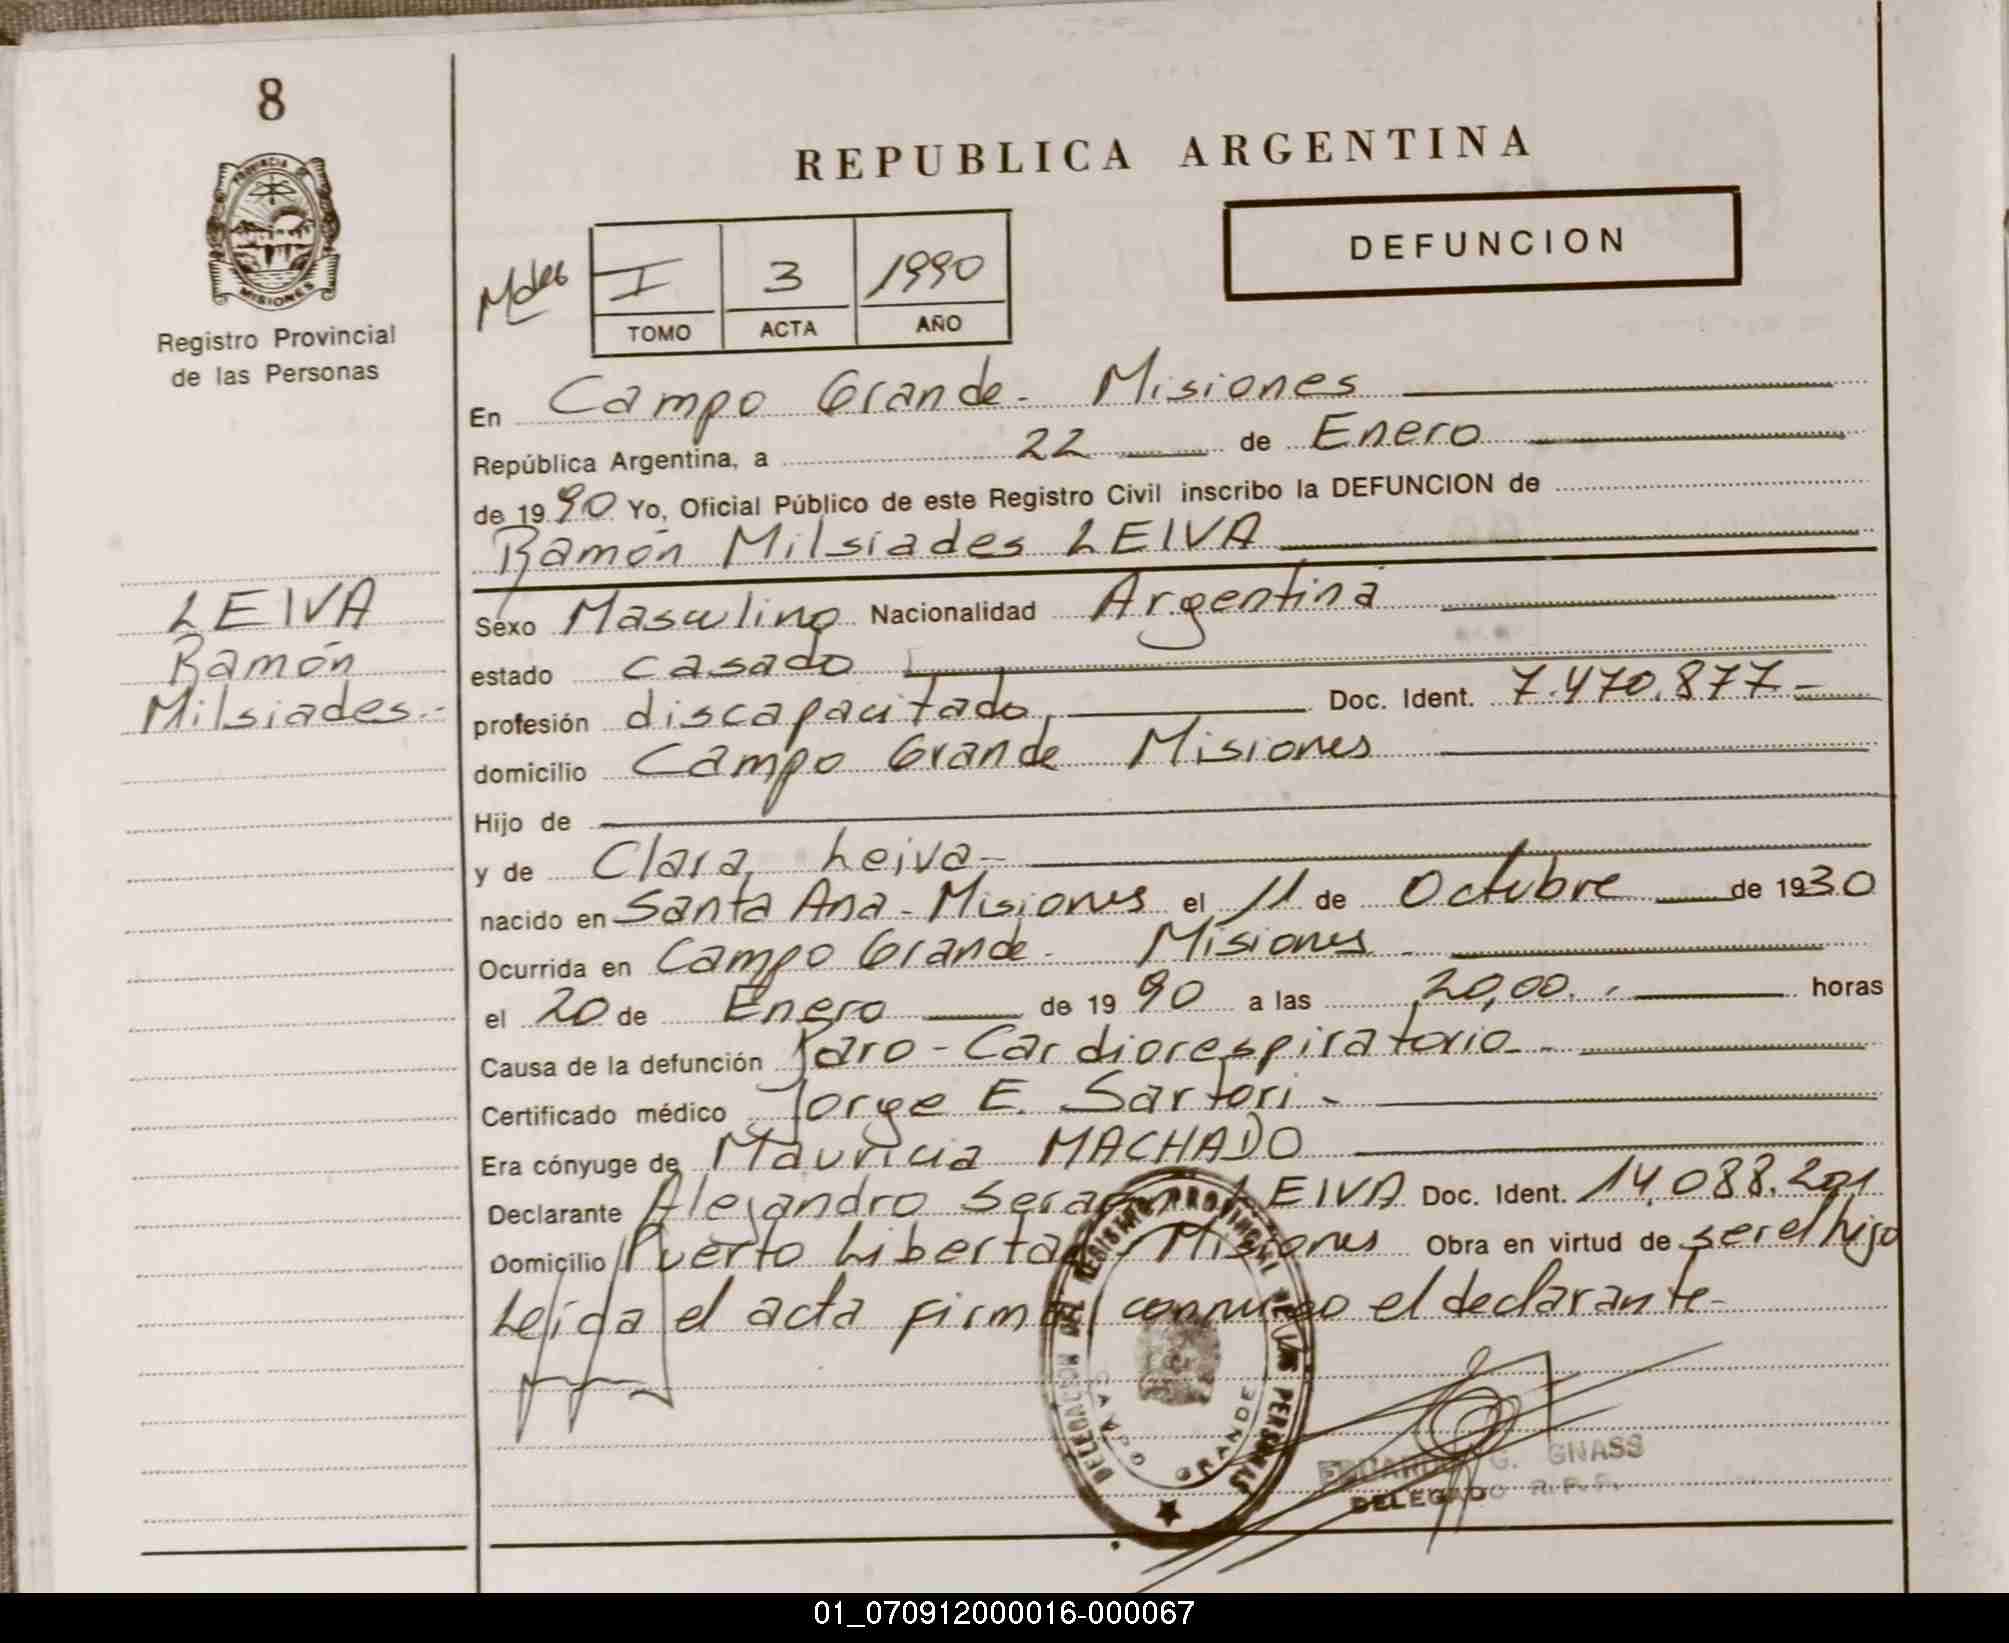 8
PROVINCIA DE
MISIONES
Registro Provincial
de las Personas
REPUBLICA ARGENTINA
DEFUNCION
I 3 1990
TOMO ACTA AÑO
En Campo Grande - Misiones
República Argentina, a 22 de Enero
de 1990 Yo, Oficial Público de este Registro Civil inscribo la DEFUNCION de
Ramón Milsiades LEIVA
LEIVA
Ramón
Milsiades.-
Sexo Masculino Nacionalidad Argentina
estado casado
profesión discapacitado, Doc. Ident. 7.470.877-
domicilio Campo Grande Misiones
Hijo de
y de Clara Leiva-
nacido en Santa Ana - Misiones el 11 de Octubre de 1930
Ocurrida en Campo Grande - Misiones -
el 20 de Enero de 1990 a las 20,00. horas
Causa de la defunción Paro - Cardiorespiratorio -
Certificado médico Jorge E. Sartori -
Era cónyuge de Mauricia MACHADO
Declarante Alejandro LEIVA Doc. Ident. 14.088.201
Domicilio Puerto Libertad - Misiones Obra en virtud de ser el hijo
Leída el acta firma conmigo el declarante-
DELEGACION DEL REGISTRO PROVINCIAL DE LAS PERSONAS
CAMPO GRANDE
EDUARDO G. GNASS
DELEGADO R.P.P.
01_070912000016-000067